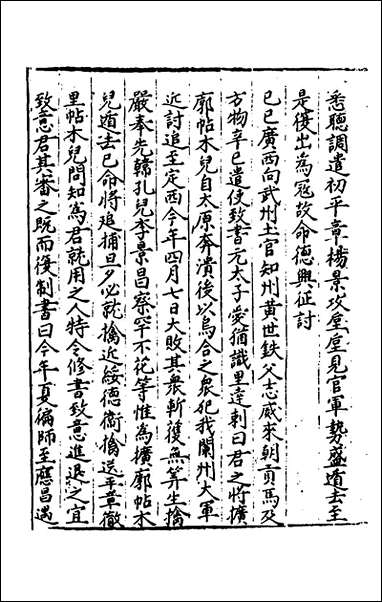 悉聽調遣初平章楊景攻堂堂見官軍勢盛遁去至
是復出為冦故命德興征討
己巳廣西向武州土官知州黄世鉄父志威來朝貢馬及
方物辛巳遣使致書元太子愛猶識里達剌曰君之將擴
廓帖木兒自太原奔潰後以烏合之衆犯我蘭州大軍
近討追至定西今年四月七日大敗其衆斬獲無筭生擒
嚴奉先韓孔兒李景昌察罕不花等惟為擴廓帖木
兒遁去已命將追捕旦夕必就擒近綏德衛擒送平章徹
里帖木兒問知為君就用之人特令修書致意進退之宜
致意君其審之既而復制書曰今年夏偏師至應昌遇